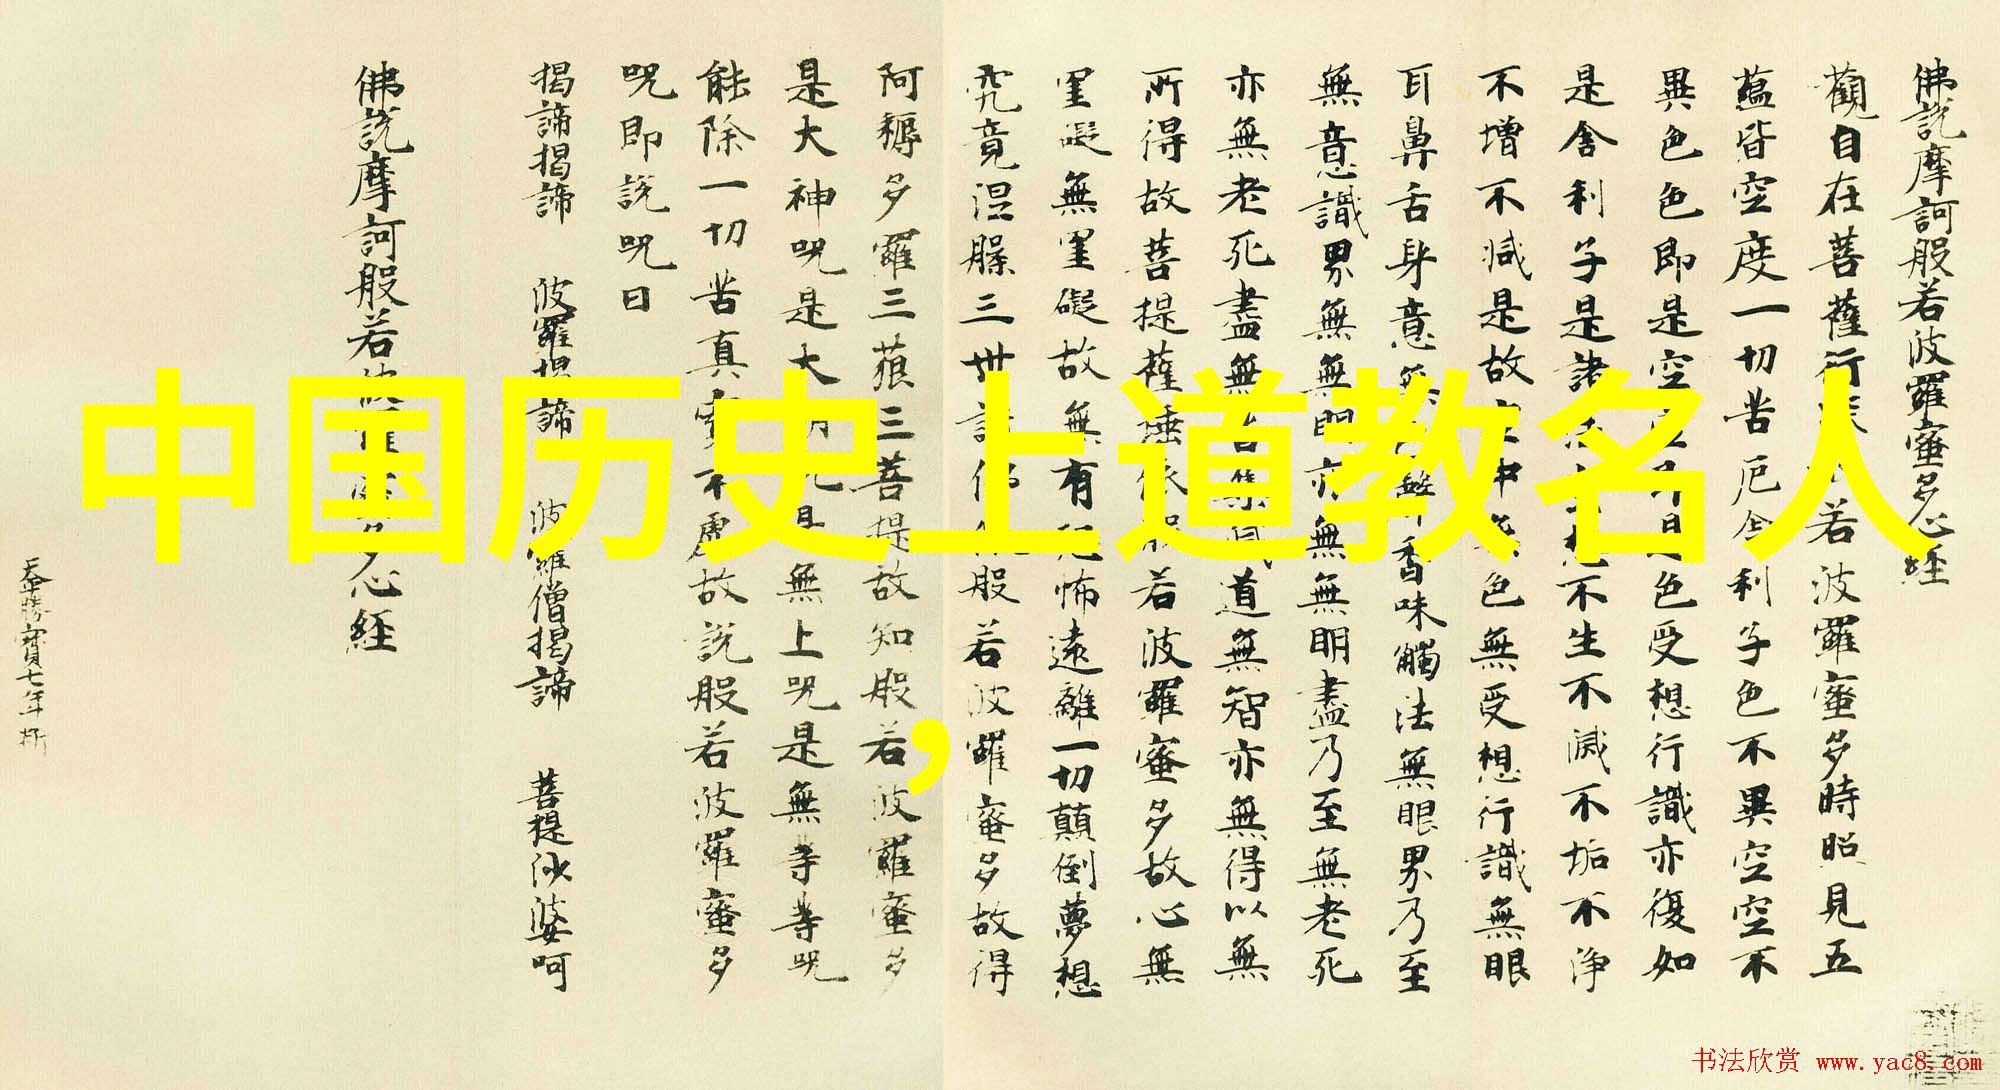 佛說摩訶般若波羅蜜多心経
觀自在菩薩行若波羅蜜多時照見五
蘊皆空度一切苦厄舍利子色不異空空不
異色色即是空色受想行識亦復如
是舍利子是諸法不生不滅不垢不淨
不增不減是故中色無受想行識無眼
耳鼻舌身意無香味觸法無眼界乃至
無意識界無無明亦無無明盡乃至無老死
亦無老死盡無道無智亦無得以無
所得故菩提薩埵依若波羅蜜多故心無
罣礙無罣礙故無有怖遠離一切顛倒夢想
究竟涅槃三世諸佛般若波羅蜜多故得
阿耨多羅三藐三菩提故知般若波羅蜜多
是大神呪是大無上呪是無等等呪
能除一切苦真實不虛故說般若波羅蜜多
呪即說呪曰
揭諦揭諦 波羅揭諦 波羅僧揭諦 菩提沙婆呵
佛說摩訶般若心経
天寶七年
中国历史上道教名人
，
书法欣赏 www.yac8.com